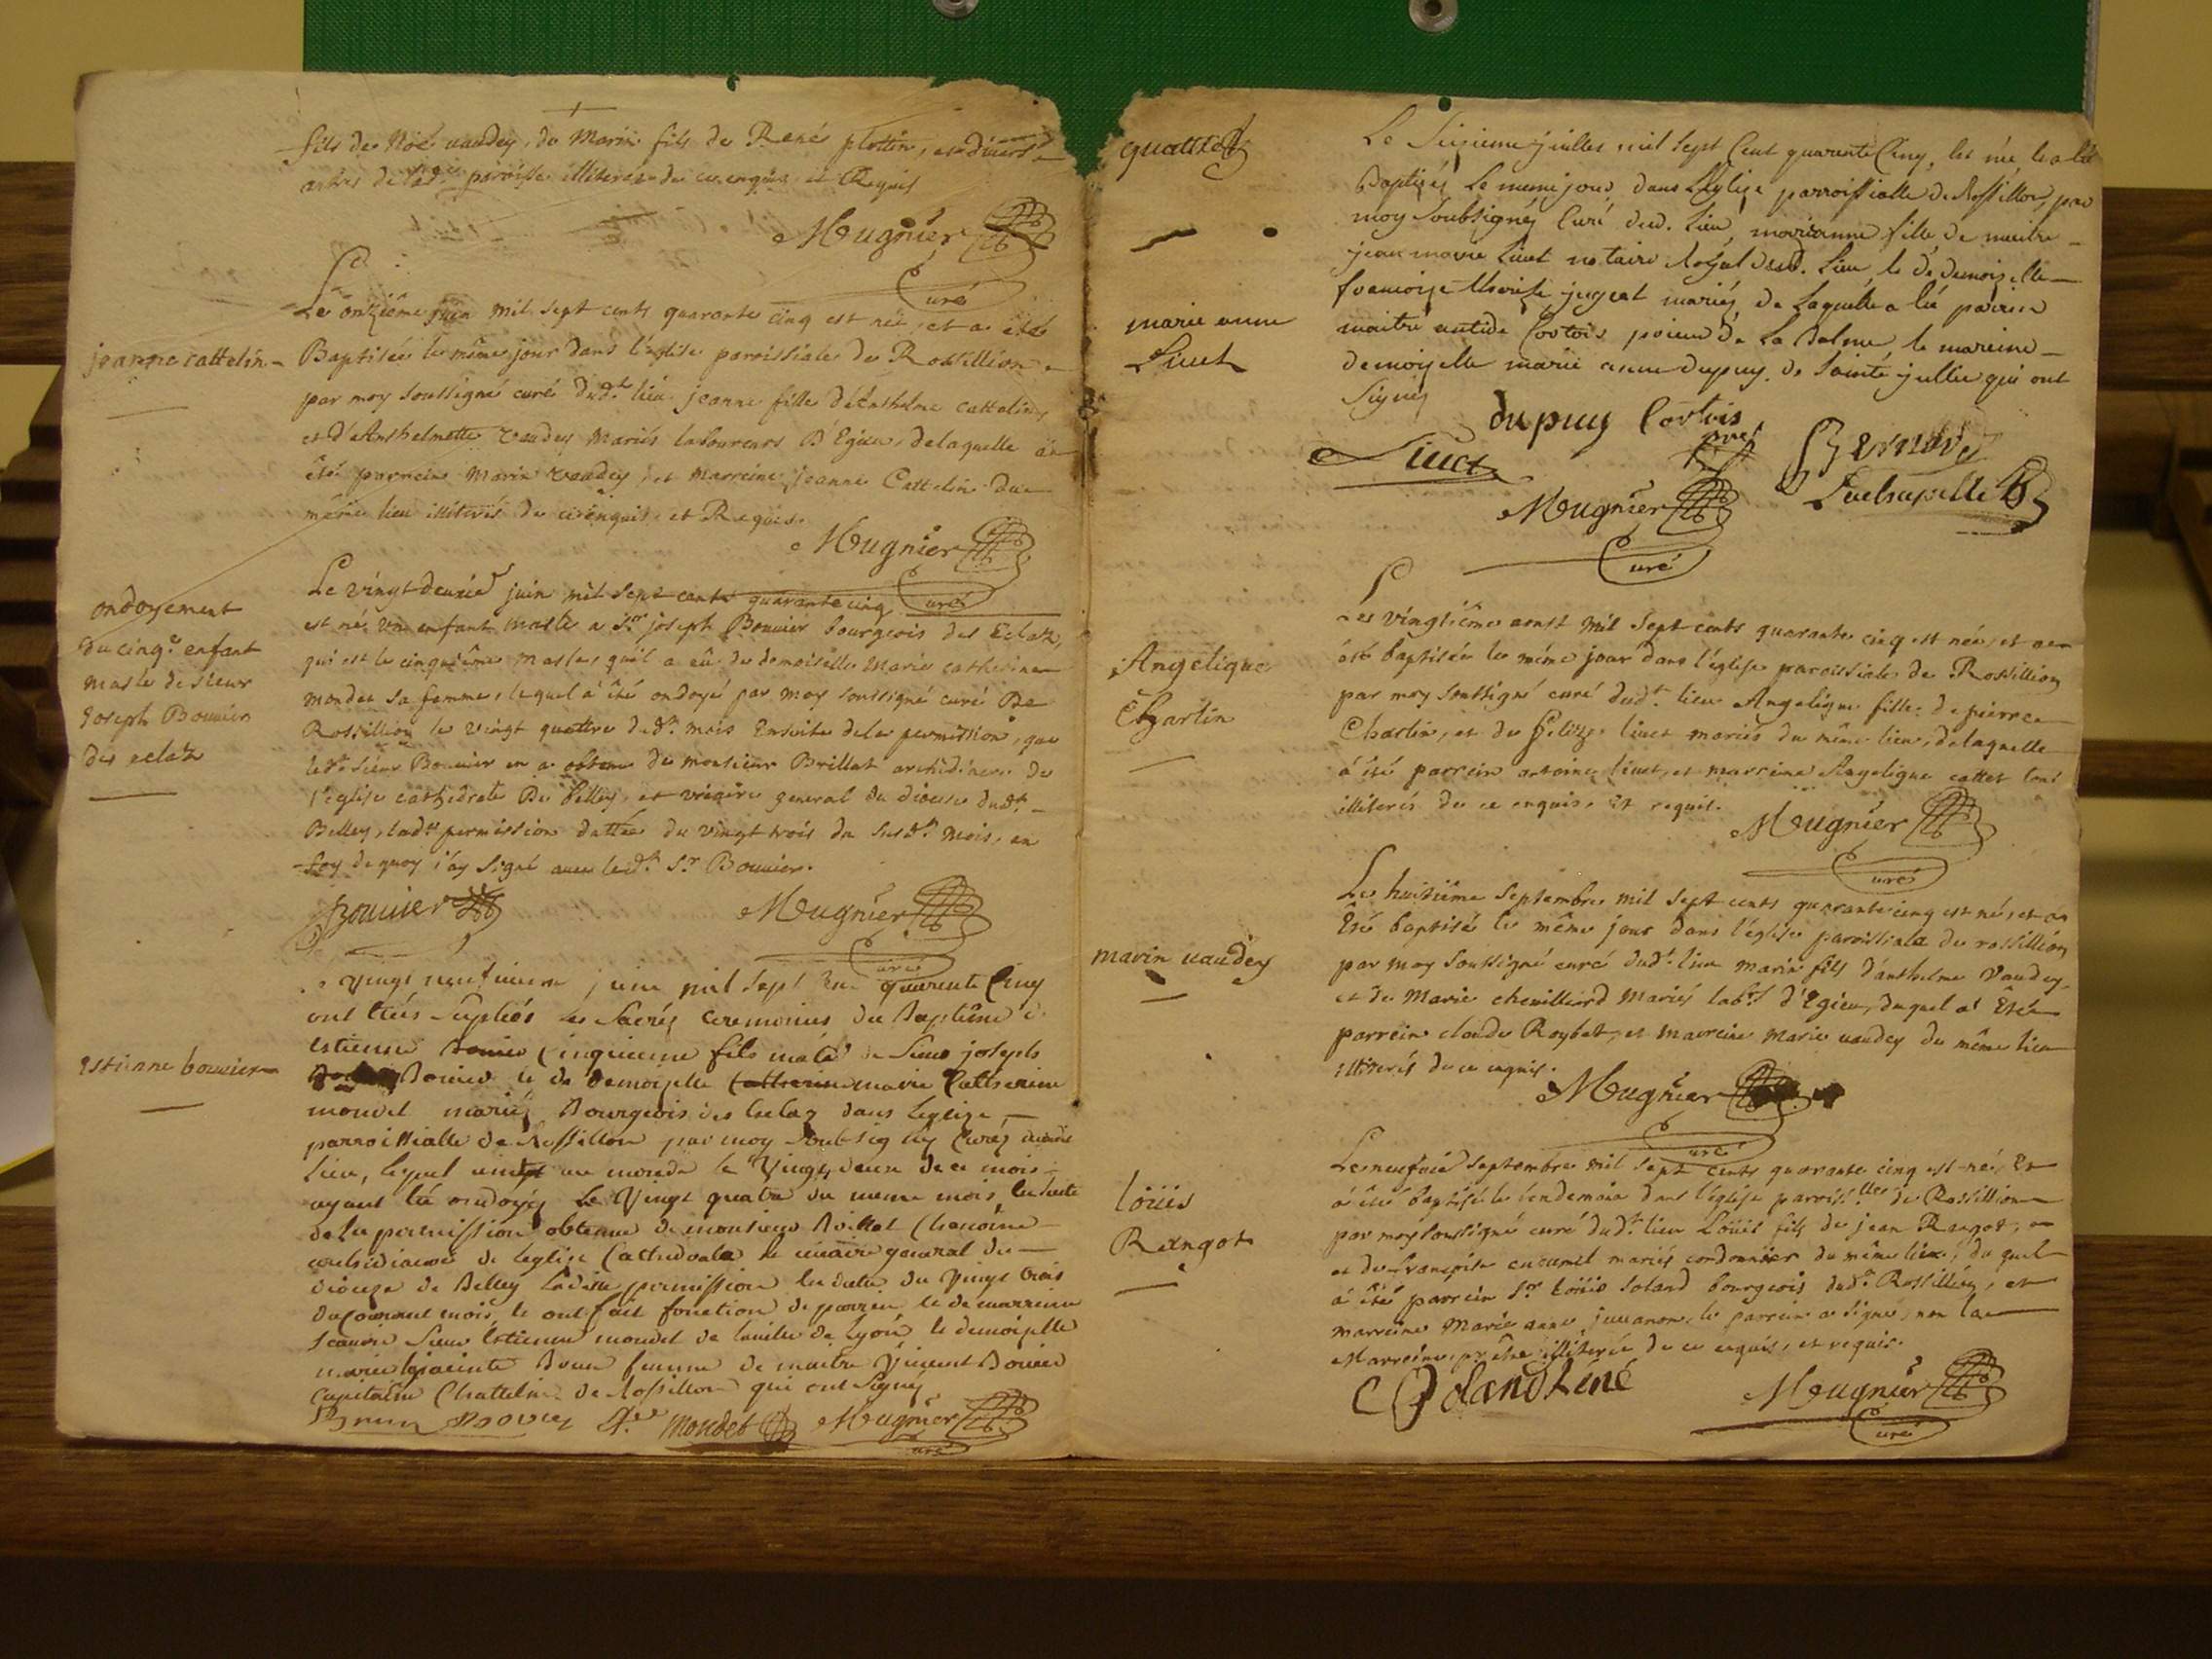 fils de Noë vaudey, de Marin fils de René plottin, et divers
autres de lad.e paroisse illiterés de ce enquis et Requis
Mugnier
curé
jeanne cattelin
Le onzième juin mil sept cents quarante cinq est née, et a été
Baptisée le même jour dans l'église paroissiale de Rossillion
par moy soussigné curé dud.t lieu jeanne fille d'Anthelme cattelin
et d'Anthelmette Vaudey Mariés laboureurs D'Egieu, delaquelle a
été parrein Marin Vaudey, et Marreine jeanne Cattelin du
même lieu illiterés de ce enquis et Requis.
Mugnier
curé
ondoyement
du cinq.e enfant
masle de sieur
Joseph Bouvier
des eclaz
Le vingt deuxiè juin mil sept cents quarante cinq
est né un enfant masle a S.r joseph Bouvier bourgeois des Eclaz,
qui est le cinquième masle, qu'il a eû de demoiselle Marie catherine
mondet sa femme, lequel a été ondoyé par moy soussigné curé De
Rossillion le vingt quattre dud.t mois Ensuite dela permission, que
led.t sieur Bouvier en a obtenu de monsieur Brillat archidiacre de
l'eglise cathedrale De Belley, et vicaire general du diocese dud.t
Belley, lad.te permission dattée du vingt trois du susd.t mois, en
foy de quoy j'ay signé avec led.t S.r Bouvier.
Bouvier Mugnier
curé
estienne bouvier
Le Vingt neufvieme juin mil sept cent quarente Cinq
ont étées supléés les sacrés ceremonies du Baptême a
estienne Cinquieme fils male de Sieur joseph
Bouvier et de Demoiselle marie Catherine
mondet mariés Bourgeois des Eclaz dans leglize
parroissialle de Rossillon par moy soubsigné Curé dudit
lieu, lequel vint au monde le Vingt deux de ce mois
ayant été ondoyé Le Vingt quatre du meme mois, en suite
de La permission obtenue de monsieur Brillat Chanoine
archidiacre de leglise Cathedrale et vicaire general du
dioceze de Belley Ladite permission en datte du Vingt trois
du Courant mois, et ont fait fonction de parrein et de marreine
scavoir Sieur Estienne mondet de la ville de Lyon et demoiselle
marie hyacinte Brun femme de maitre Vincent Bouvier
Capitaine Chattelin de Rossillon qui ont Signés
Brun Bouvier E. Mondet Mugnier
curé
quattre
marie anne
Livet
Le Sixieme juillet mil sept Cent quarente Cinq, est née et a été
Baptisée Le meme jour dans L'Eglise parroissialle de Rossillon, par
moy soubsigné Curé dud. Lieu, marianne fille de maitre
jean marie Livet notaire Royal dud. Lieu et de demoizelle
francoise therese juget mariés, de Laquelle a été parrein
maitre antide Cortois prieur de La Balme, et mareine
demoiselle marie anne dupuy. de Sainte jullie qui ont
Signés
dupuy Cortois
Livet Bernard
Mugnier Lachapelle
curé
Angelique
Charlin
Le vingtième aoust Mil sept cents quarante cinq est née, et a
été baptisée le même jour dans l'église paroissiale de Rossillion
par moy soussigné curé dud.t lieu Angelique fille de pierre
Charlin, et de livet mariés du même lieu, delaquelle
a été parrein antoine livet, et marreine Angelique cattet tous
illiterés de ce enquis, Et requis.
Mugnier
curé
marin vaudey
Le huitième Septembre mil sept cents quarante cinq est né, et a
Eté baptisé le même jour dans l'église paroissiale de rossillion
par moy soussigné curé dud.t lieu marin fils d'anthelme Vaudey
et de Marie chevilliard Mariés lab.rs d'Egieu, duquel a Eté
parrein claude Roybet, et marreine Marie vaudey du même lieu
illiterés de ce enquis.
Mugnier
curé
loüis
Rangot
Le neufviè Septembre mil sept cents quarante cinq est né, Et
a été baptisé le lendemain dans l'église parois.lle de Rossillion
par moy soussigné curé dud.t lieu Loüis fils de jean Rangot,
et de francoise mariés cordonnier du même lieu, du quel
a été parrein S.r Loüis Soland bourgeois dud.t Rossillion, et
marreine Marie anne juvanon, le parrein a signé, non la
Marreine pr être illiterée de ce enquis, et requis.
Soland
Mugnier
curé